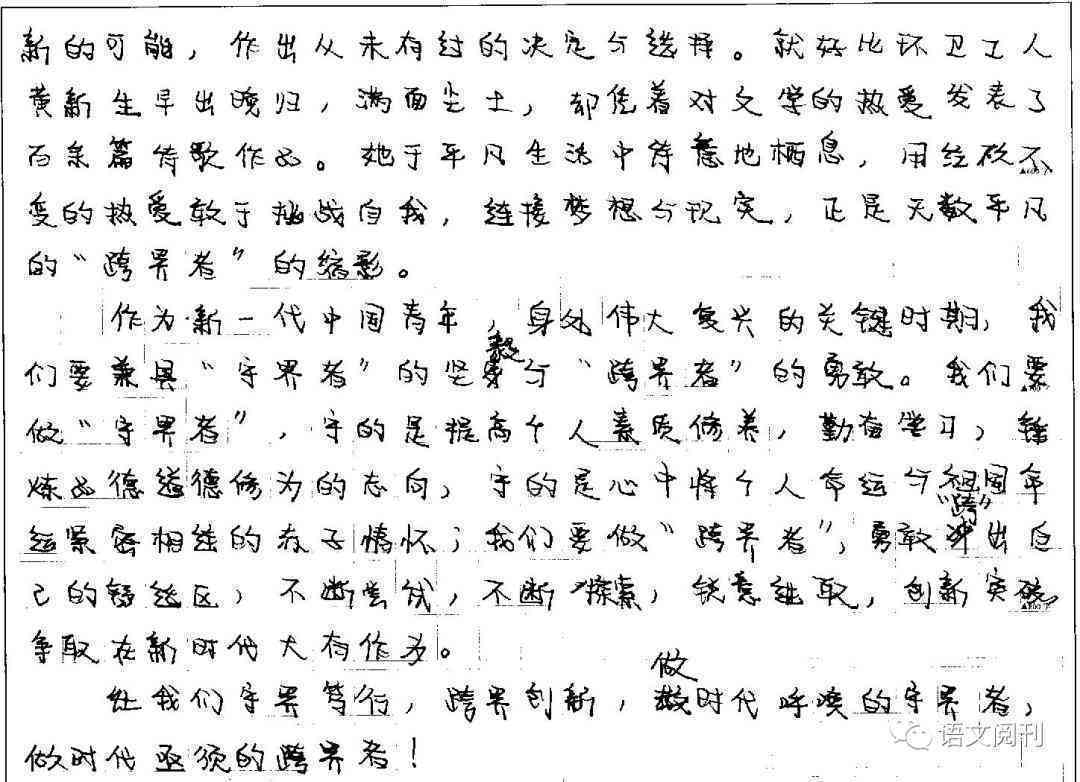 新的可能，作出从未有过的决定与选择。就好比环卫工人
黄新生早出晚归，满面尘土，却凭着对文学的热爱发表了
百余篇诗歌作品。她于平凡生活中诗意地栖息，用经砍不
变的热爱敢于挑战自我，连接梦想与现实，正是无数平凡
的“跨界者”的缩影。
作为新一代中国青年，身处伟大复兴的关键时期，我
们要兼具“守界者”的坚毅与“跨界者”的勇敢。我们要
做“守界者”，守的是提高个人素质修养，勤奋学习，锤
炼品德道德修为的志向，守的是心中将个人命运与祖国命
运紧密相连的赤子情怀；我们要做“跨界者”，勇敢“跨”出自
己的舒适区，不断尝试，不断探索，锐意进取，创新突破，
争取在新时代大有作为。
让我们守界笃行，跨界创新，做时代呼唤的守界者，
做时代亟须的跨界者！
语文阅刊